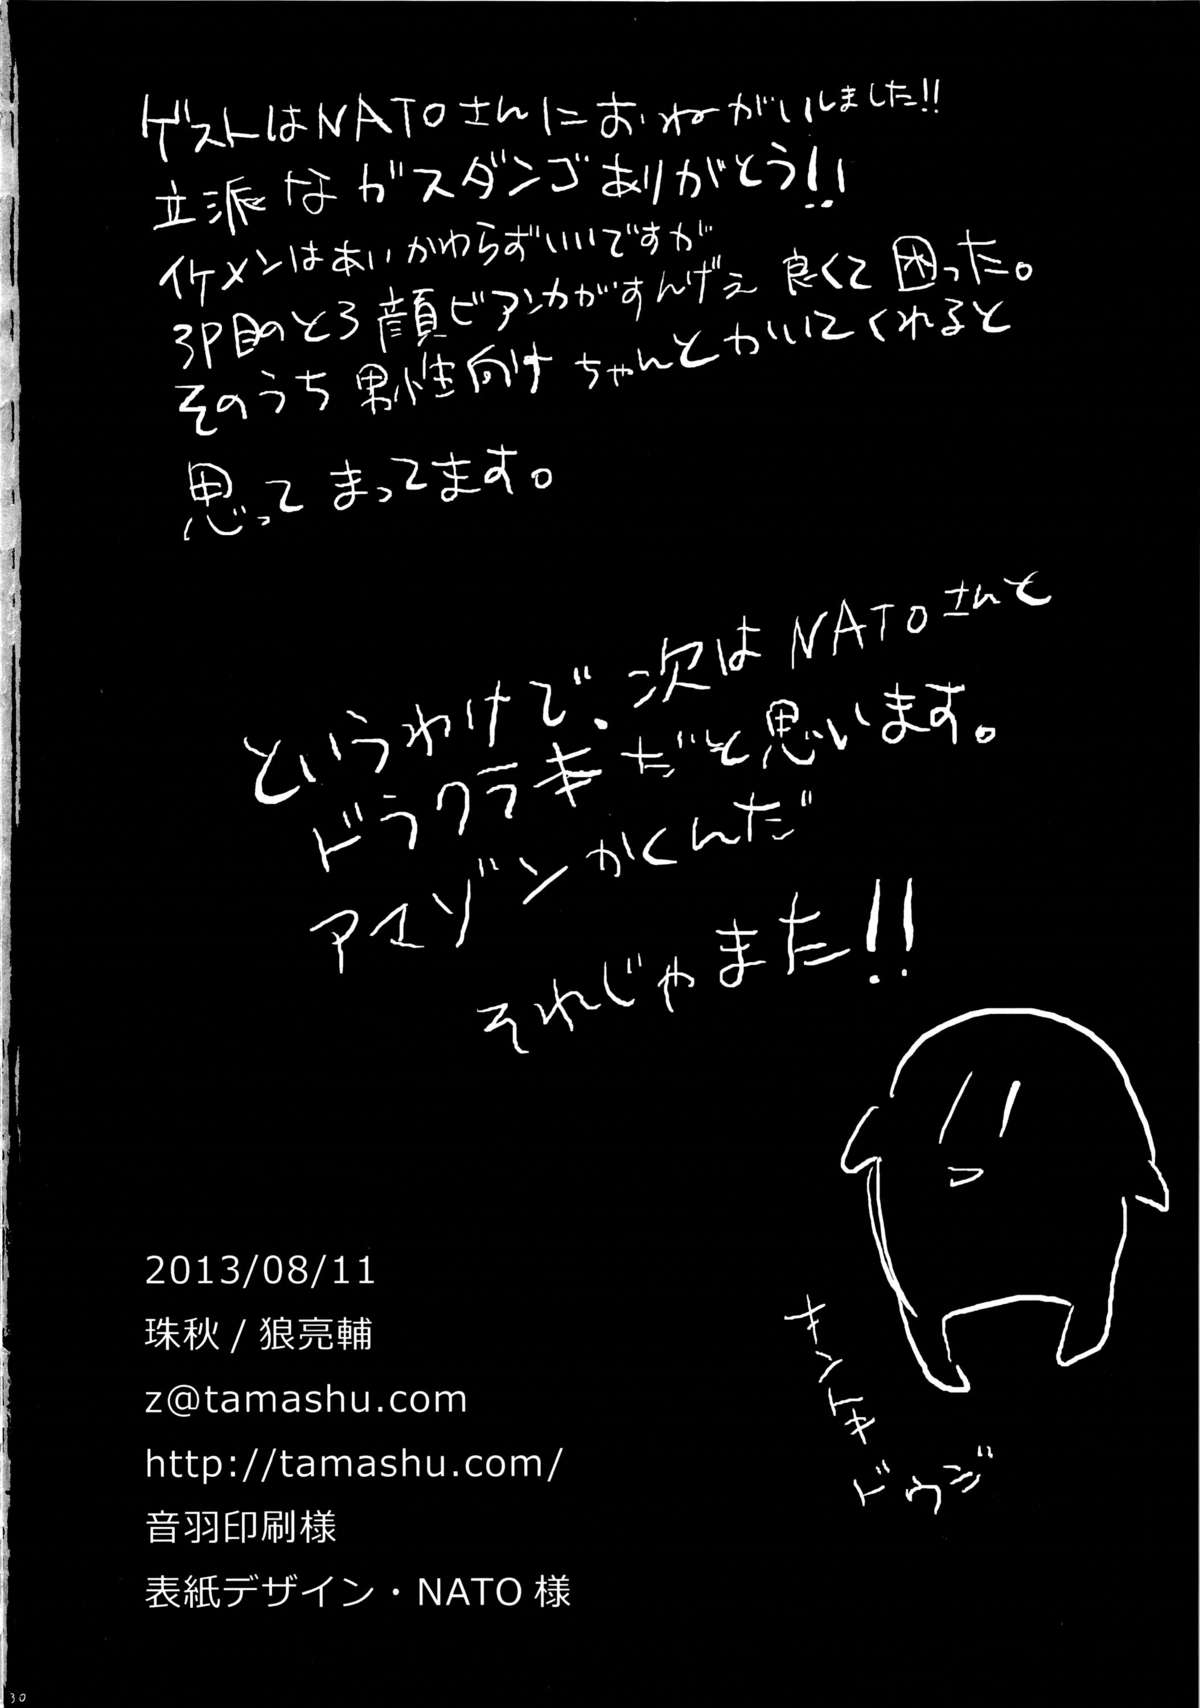 ゲストはNATOさんにおねがいしました!!
立派なガスダンゴありがとう!!
イケメンはあいかわらずいいですが
3P目のとろ顔ビアンカがすんげえ良くて困った。
そのうち男性向けちゃんとかいてくれると
思ってまってます。
というわけで、次はNATOさんと
ドラクラキだと思います。
アマゾンかくんだ
それじゃまた!!
キントキ
ドウジ
2013/08/11
珠秋 / 狼亮輔
z@tamashu.com
http://tamashu.com/
音羽印刷様
表紙デザイン・NATO 様
30